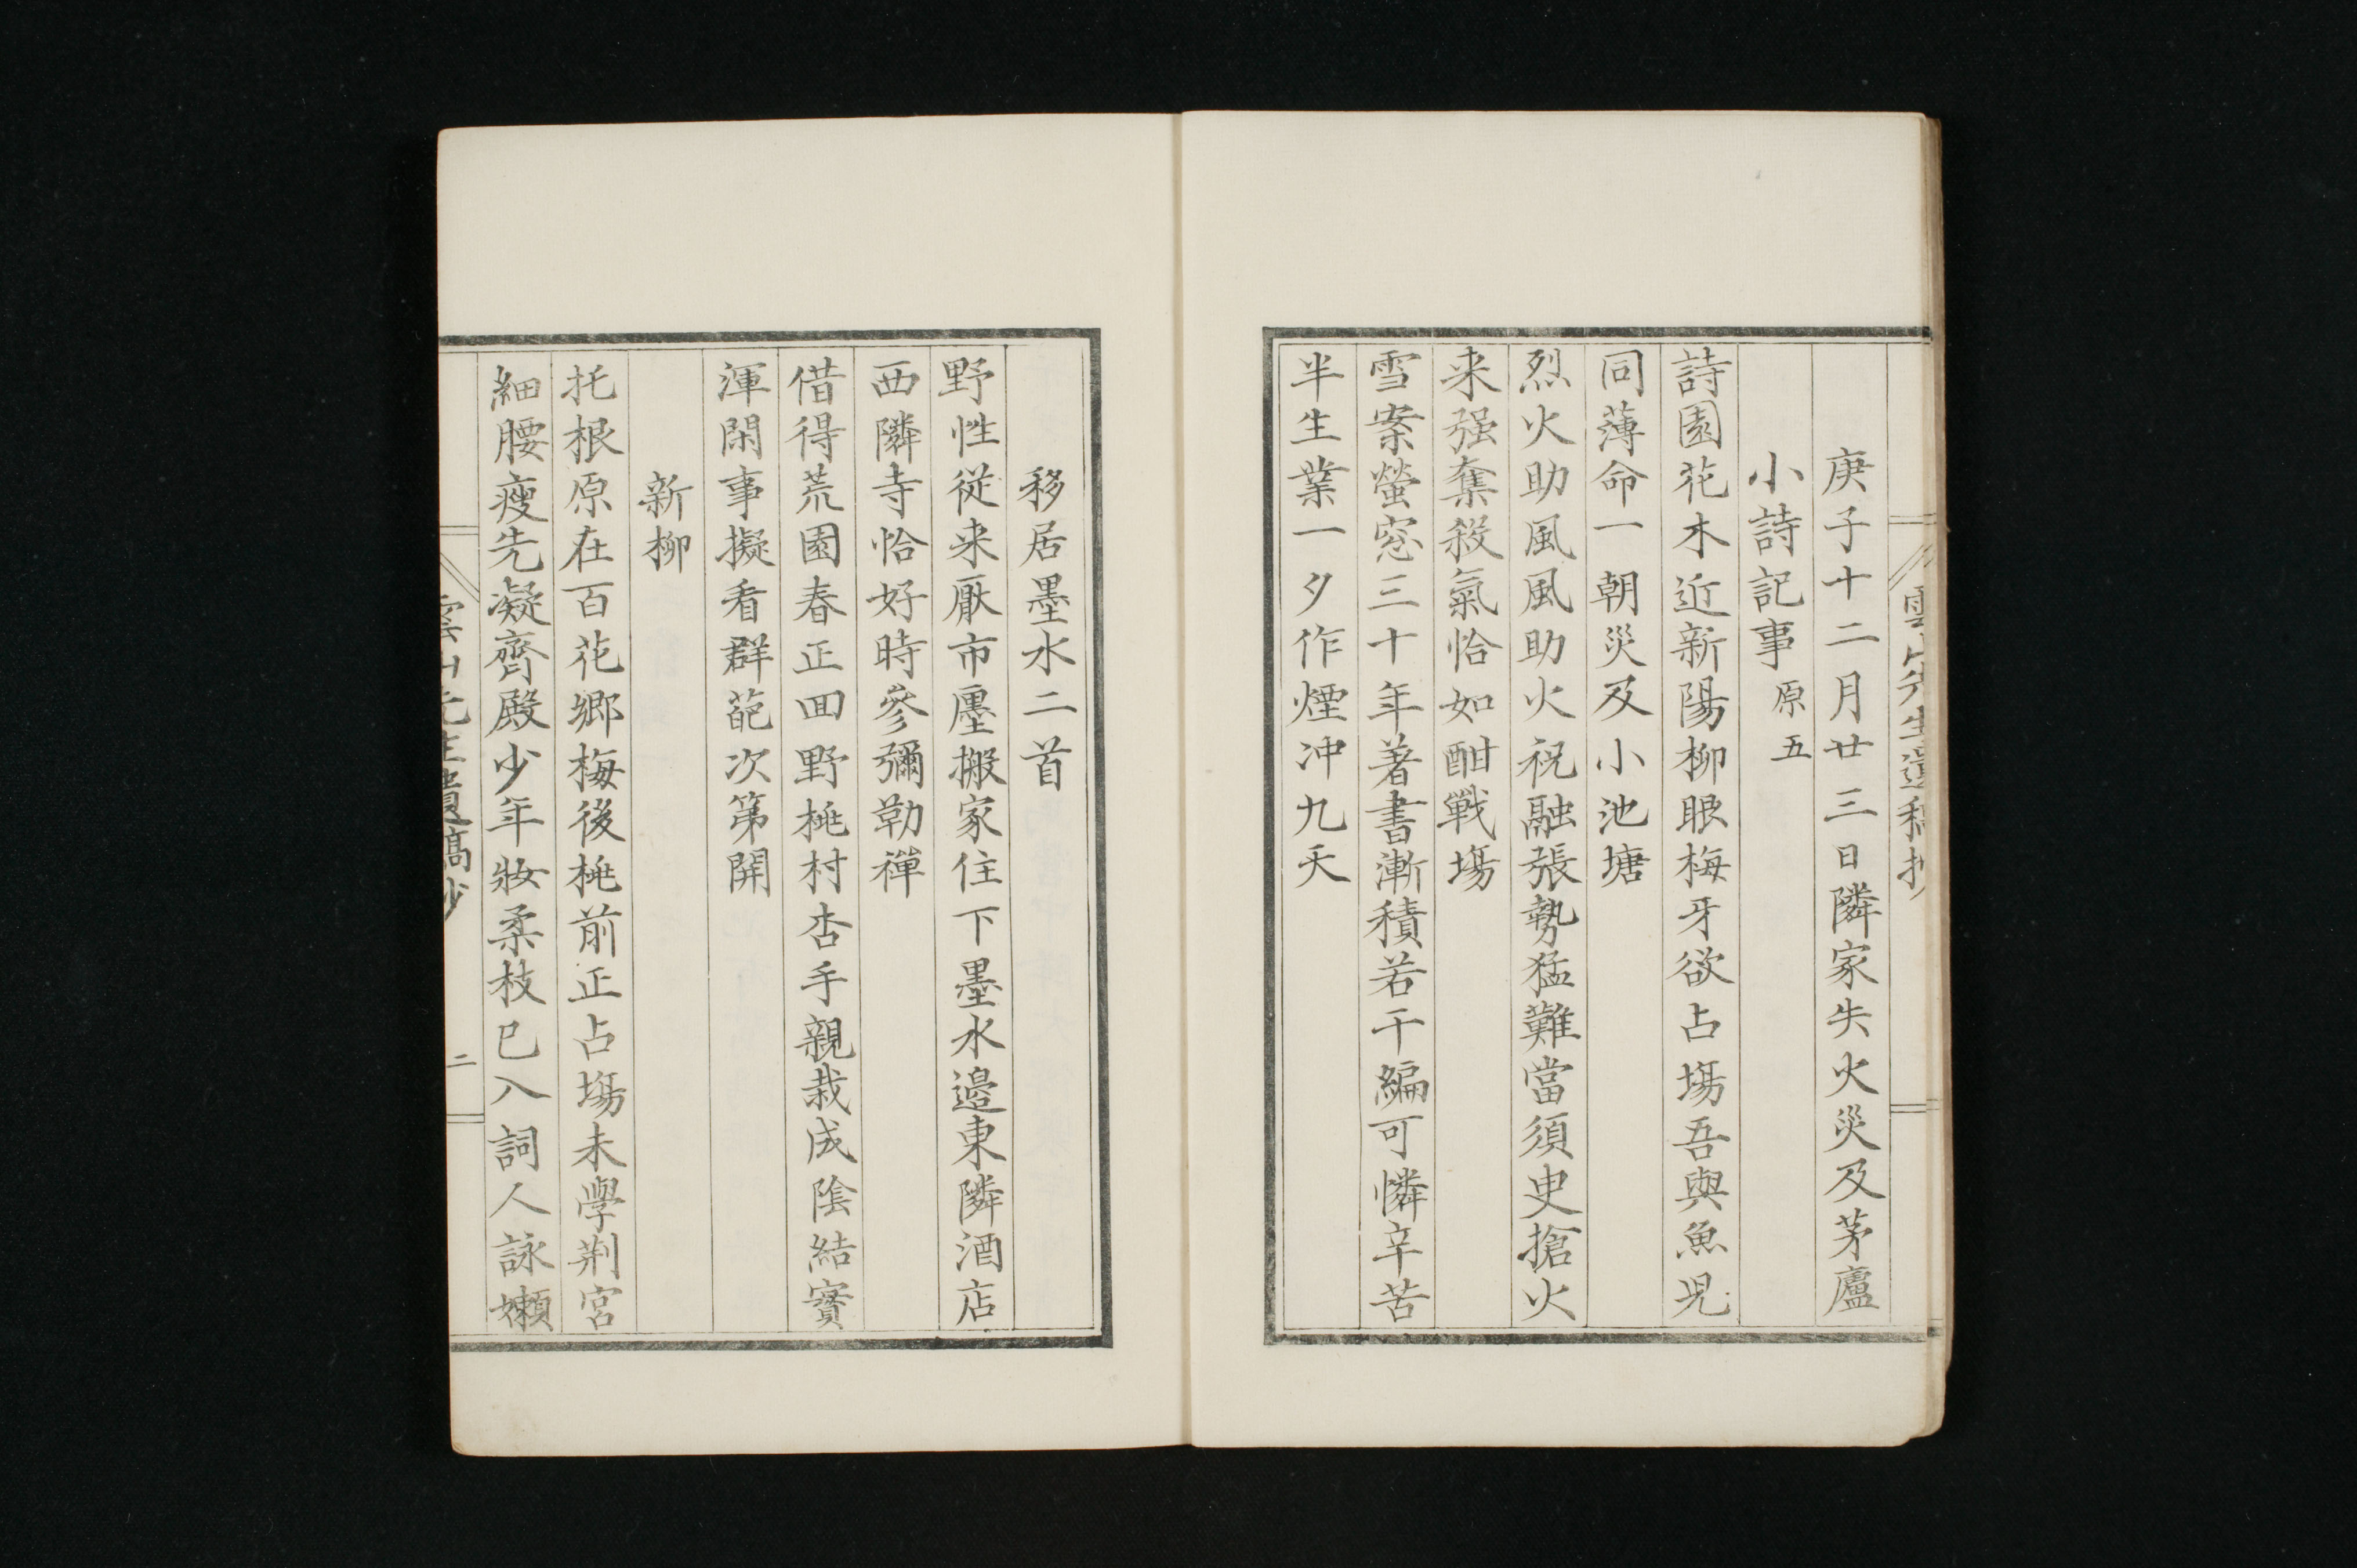 庚子十二月廿三日隣家失火災及茅廬
小詩記事原五
詩園花木近新陽柳眼梅牙欲占塲吾與魚児
同薄命一朝災及小池塘
烈火助風風助火祝融張勢猛難當須臾搶火
来强奪殺氣恰如酣戰塲
雪案螢窓三十年著書漸積若干編可憐辛苦
半生業一夕作煙冲九天
移居墨水二首
野性従来厭市廛搬家住下墨水邉東隣酒店
西隣寺恰好時參彌勒禪
借得荒園春正囬野桃村杏手親栽成陰結實
渾閑事擬看群葩次第開
新柳
托根原在百花郷梅後桃前正占塲未學荆宮
細腰瘦先凝齊殿少年妝柔枝已入詞人詠嬾
雲山先生遺稿抄
二